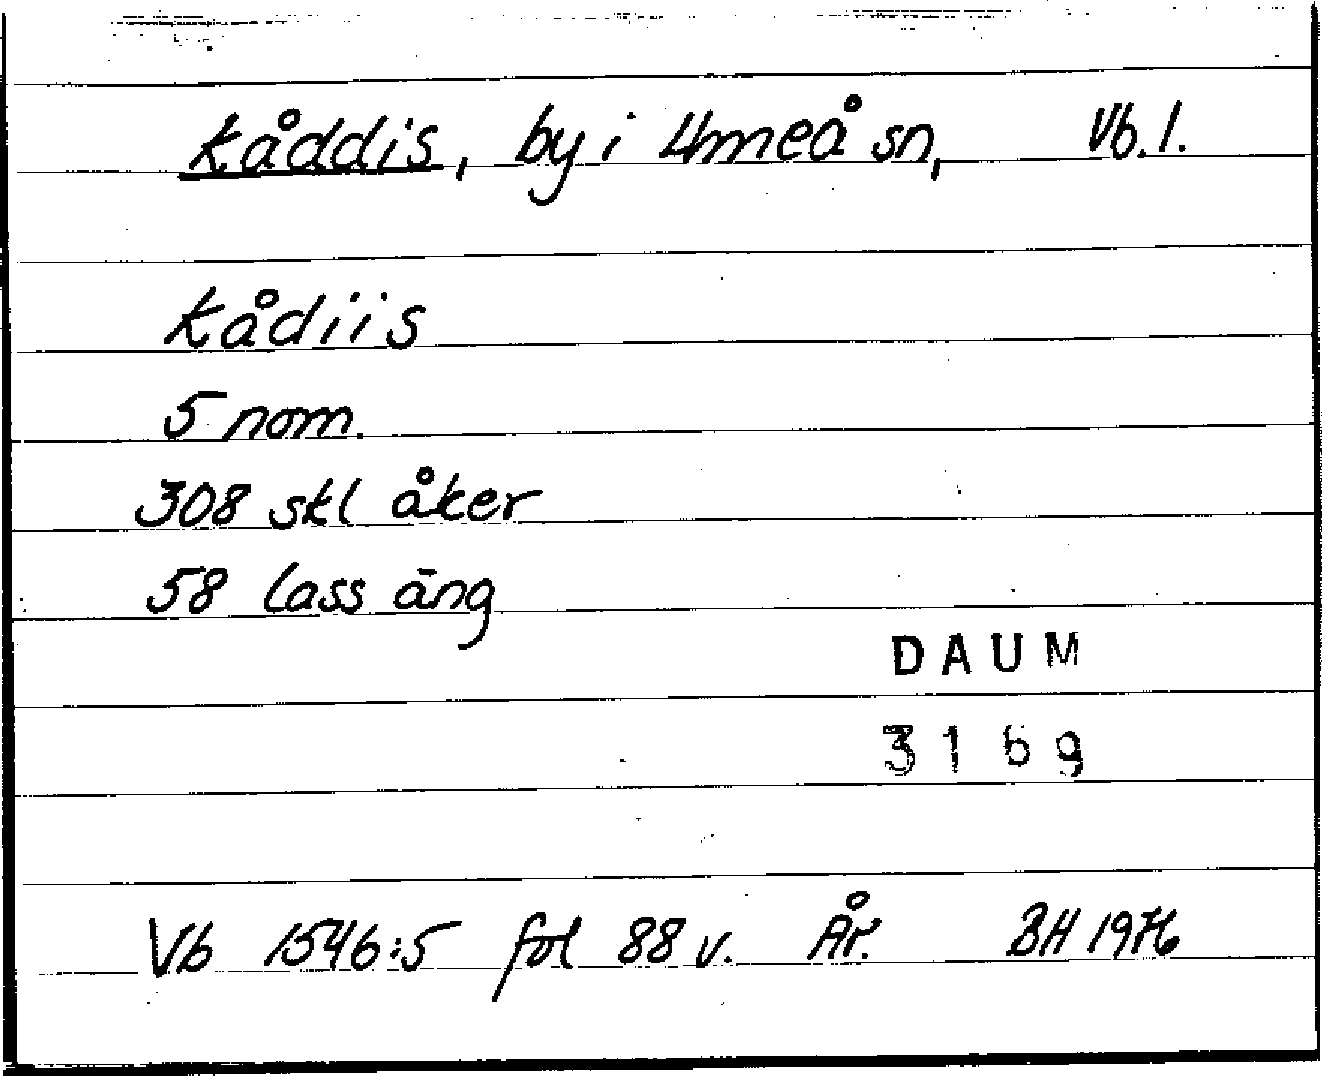 Kåddis, by i Umeå sn, Vb. l.
Kådiis
5 nom.
308 skl åker
58 lass äng
DAUM
3169
Vb 1546:5 fol 88 v. ÅR. BH 1976